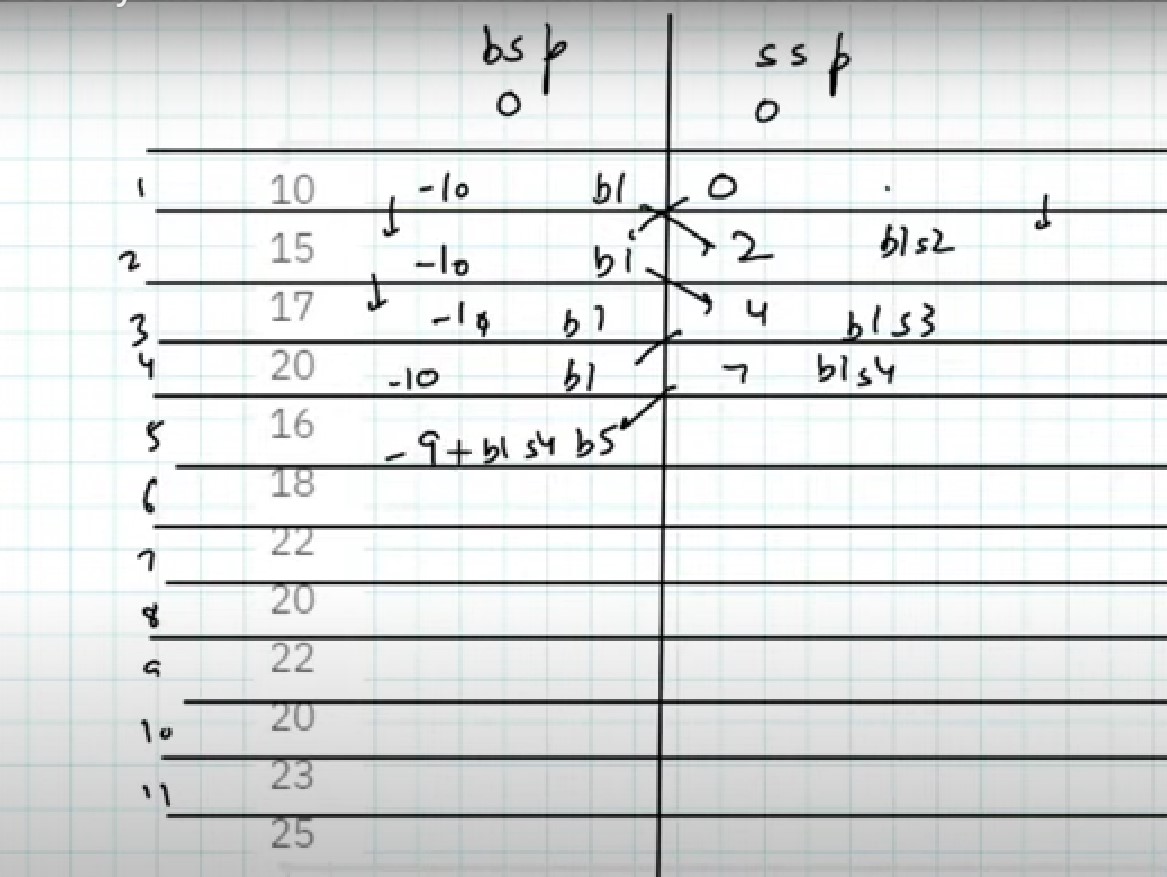 bsp ssp
0 0
1 10 -10 b1 0
2 15 -10 b1 2 b1s2
3 17 -10 b1 4 b1s3
4 20 -10 b1 7 b1s4
5 16 -9+b1 s4 b5
6 18
7 22
8 20
9 22
10 20
11 23
25